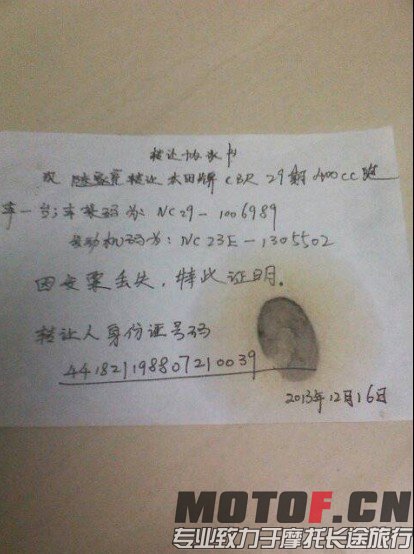 转让协议书
我 转让 本田牌 CBR 29期 400CC 跑
车一台;车架码为: NC29-1006989
发动机码为: NC23E-1305502
因发票丢失,特此证明。
转让人身份证号码
441821198807210039
2013年12月16日
MOTOF.CN
专业致力于摩托长途旅行